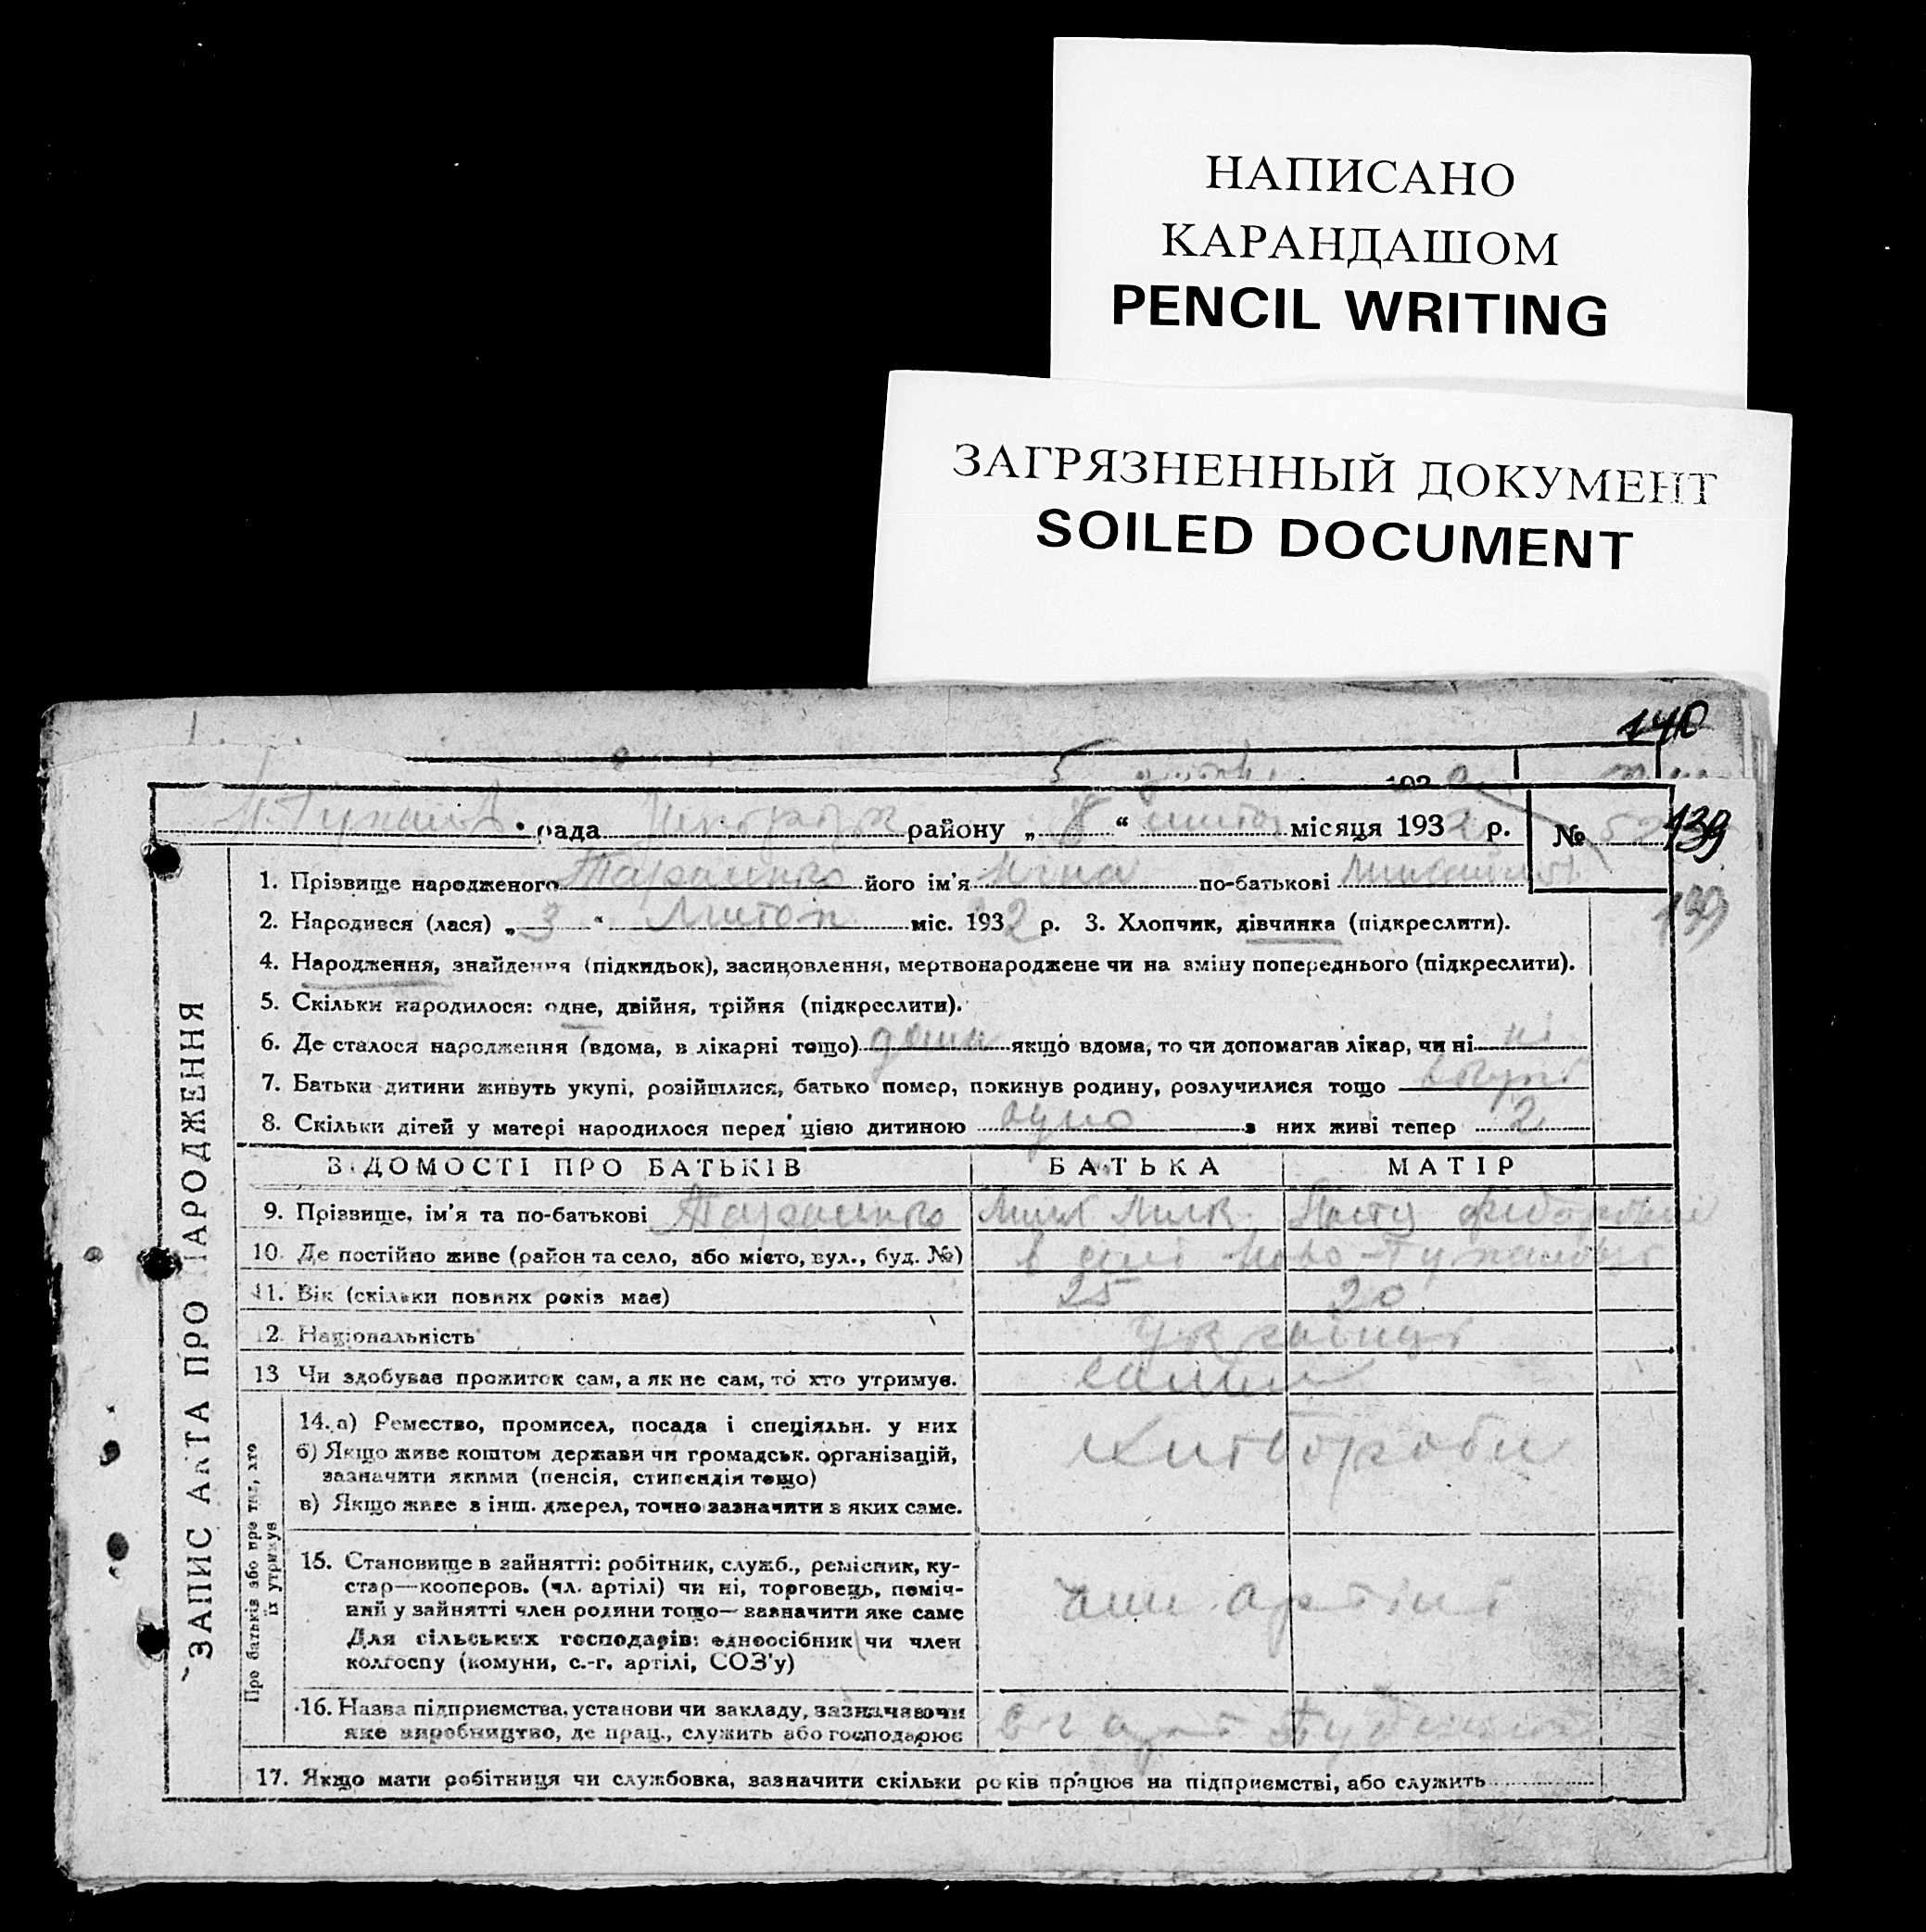 НАПИСАНО
КАРАНДАШОМ
PENCIL WRITING
ЗАГРЯЗНЕННЫЙ ДОКУМЕНТ
SOILED DOCUMENT
140
рада району „ 8 “ місяця 1932 р. № 52 139
1. Прізвище народженого Тараненко його ім'я Ніна по-батькові
139
2. Народився (лася) „ 3 “ Листоп міс. 1932 р. 3. Хлопчик, дівчинка (підкреслити).
4. Народження, знайдення (підкидьок), засиновлення, мертвонароджене чи на зміну попереднього (підкреслити).
5. Скільки народилося: одне, двійня, трійня (підкреслити).
6. Де сталося народження (вдома, в лікарні тощо) дома якщо вдома, то чи допомагав лікар, чи ні ні
7. Батьки дитини живуть укупі, розійшлися, батько помер, покинув родину, розлучилися тощо вкупі
8. Скільки дітей у матері народилося перед цією дитиною одно з них живі тепер 2
ЗАПИС АКТА ПРО НАРОДЖЕННЯ
ВІДОМОСТІ ПРО БАТЬКІВ БАТЬКА МАТІР
9. Прізвище, ім'я та по-батькові Тараненко
10. Де постійно живе (район та село, або місто, вул., буд. №) в селі Ново-
11. Вік (скільки повних років має) 25 20
12. Національність українці
13 Чи здобував прожиток сам, а як не сам, то хто утримує. сами
Про батьків або про тих, хто їх утримує
14. а) Ремество, промисел, посада і спеціяльн. у них
б) Якщо живе коштом держави чи громадськ. організацій,
зазначити якими (пенсія, стипендія тощо)
в) Якщо живе з інш. джерел, точно зазначити з яких саме.
хлібороби
15. Становище в зайнятті: робітник, служб., ремісник, ку-
стар—кооперов. (чл. артілі) чи ні, торговець, поміч-
ний у зайнятті член родини тощо— зазначити яке саме
Для сільських господарів: одноосібник чи член
колгоспу (комуни, с.-г. артілі, СОЗ'у)
член артілі
16. Назва підприємства, установи чи закладу, зазначаючи
яке виробництво, де прац., служить або господарює
17. Якщо мати робітниця чи службовка, зазначити скільки років працює на підприємстві, або служить